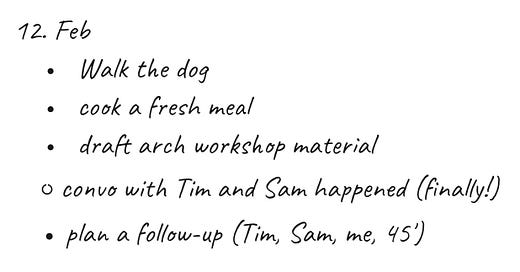 12. Feb
• Walk the dog
• cook a fresh meal
• draft arch workshop material
○ convo with Tim and Sam happened (finally!)
• plan a follow-up (Tim, Sam, me, 45')